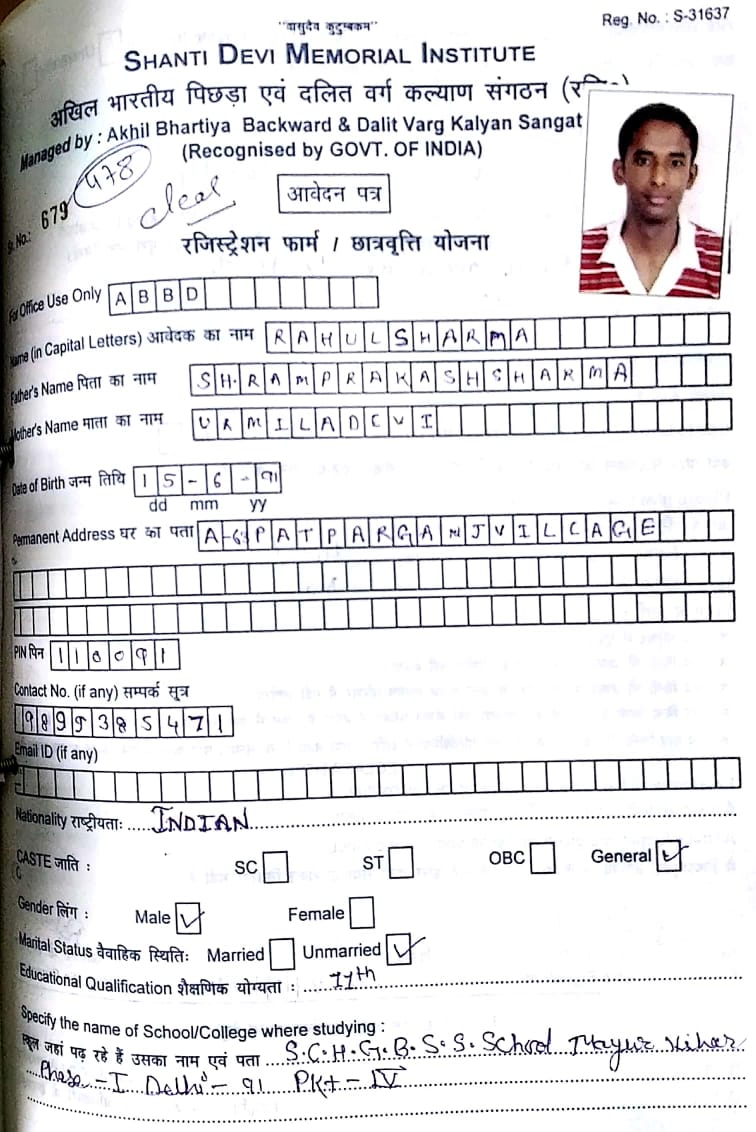 "वासुदेव कुटुम्बकम"
Reg. No. : S-31637
SHANTI DEVI MEMORIAL INSTITUTE
अखिल भारतीय पिछड़ा एवं दलित वर्ग कल्याण संगठन
Managed by : Akhil Bhartiya Backward & Dalit Varg Kalyan Sangat
(Recognised by GOVT. OF INDIA)
478
Sr. No.: 679
आवेदन पत्र
रजिस्ट्रेशन फार्म / छात्रवृत्ति योजना
For Office Use Only ABBD
Name (in Capital Letters) आवेदक का नाम RAHUL SHARMA
Father's Name पिता का नाम SH. RAM PRAKASH SHARMA
Mother's Name माता का नाम URMILA DEVI
Date of Birth जन्म तिथि 15-6-91
dd mm yy
Permanent Address घर का पता A-63 PATPARGANJ VILLAGE
PIN पिन 110091
Contact No. (if any) सम्पर्क सूत्र
9899385471
Email ID (if any)
Nationality राष्ट्रीयताः INDIAN
CASTE जाति : SC ST OBC General
Gender लिंग : Male Female
Marital Status वैवाहिक स्थितिः Married Unmarried
Educational Qualification शैक्षणिक योग्यता : 11th
Specify the name of School/College where studying :
स्कूल जहां पढ़ रहे हैं उसका नाम एवं पता S.C.H.G.B.S.S. School Mayur Vihar
Phase-I Delhi-91 PKt-IV